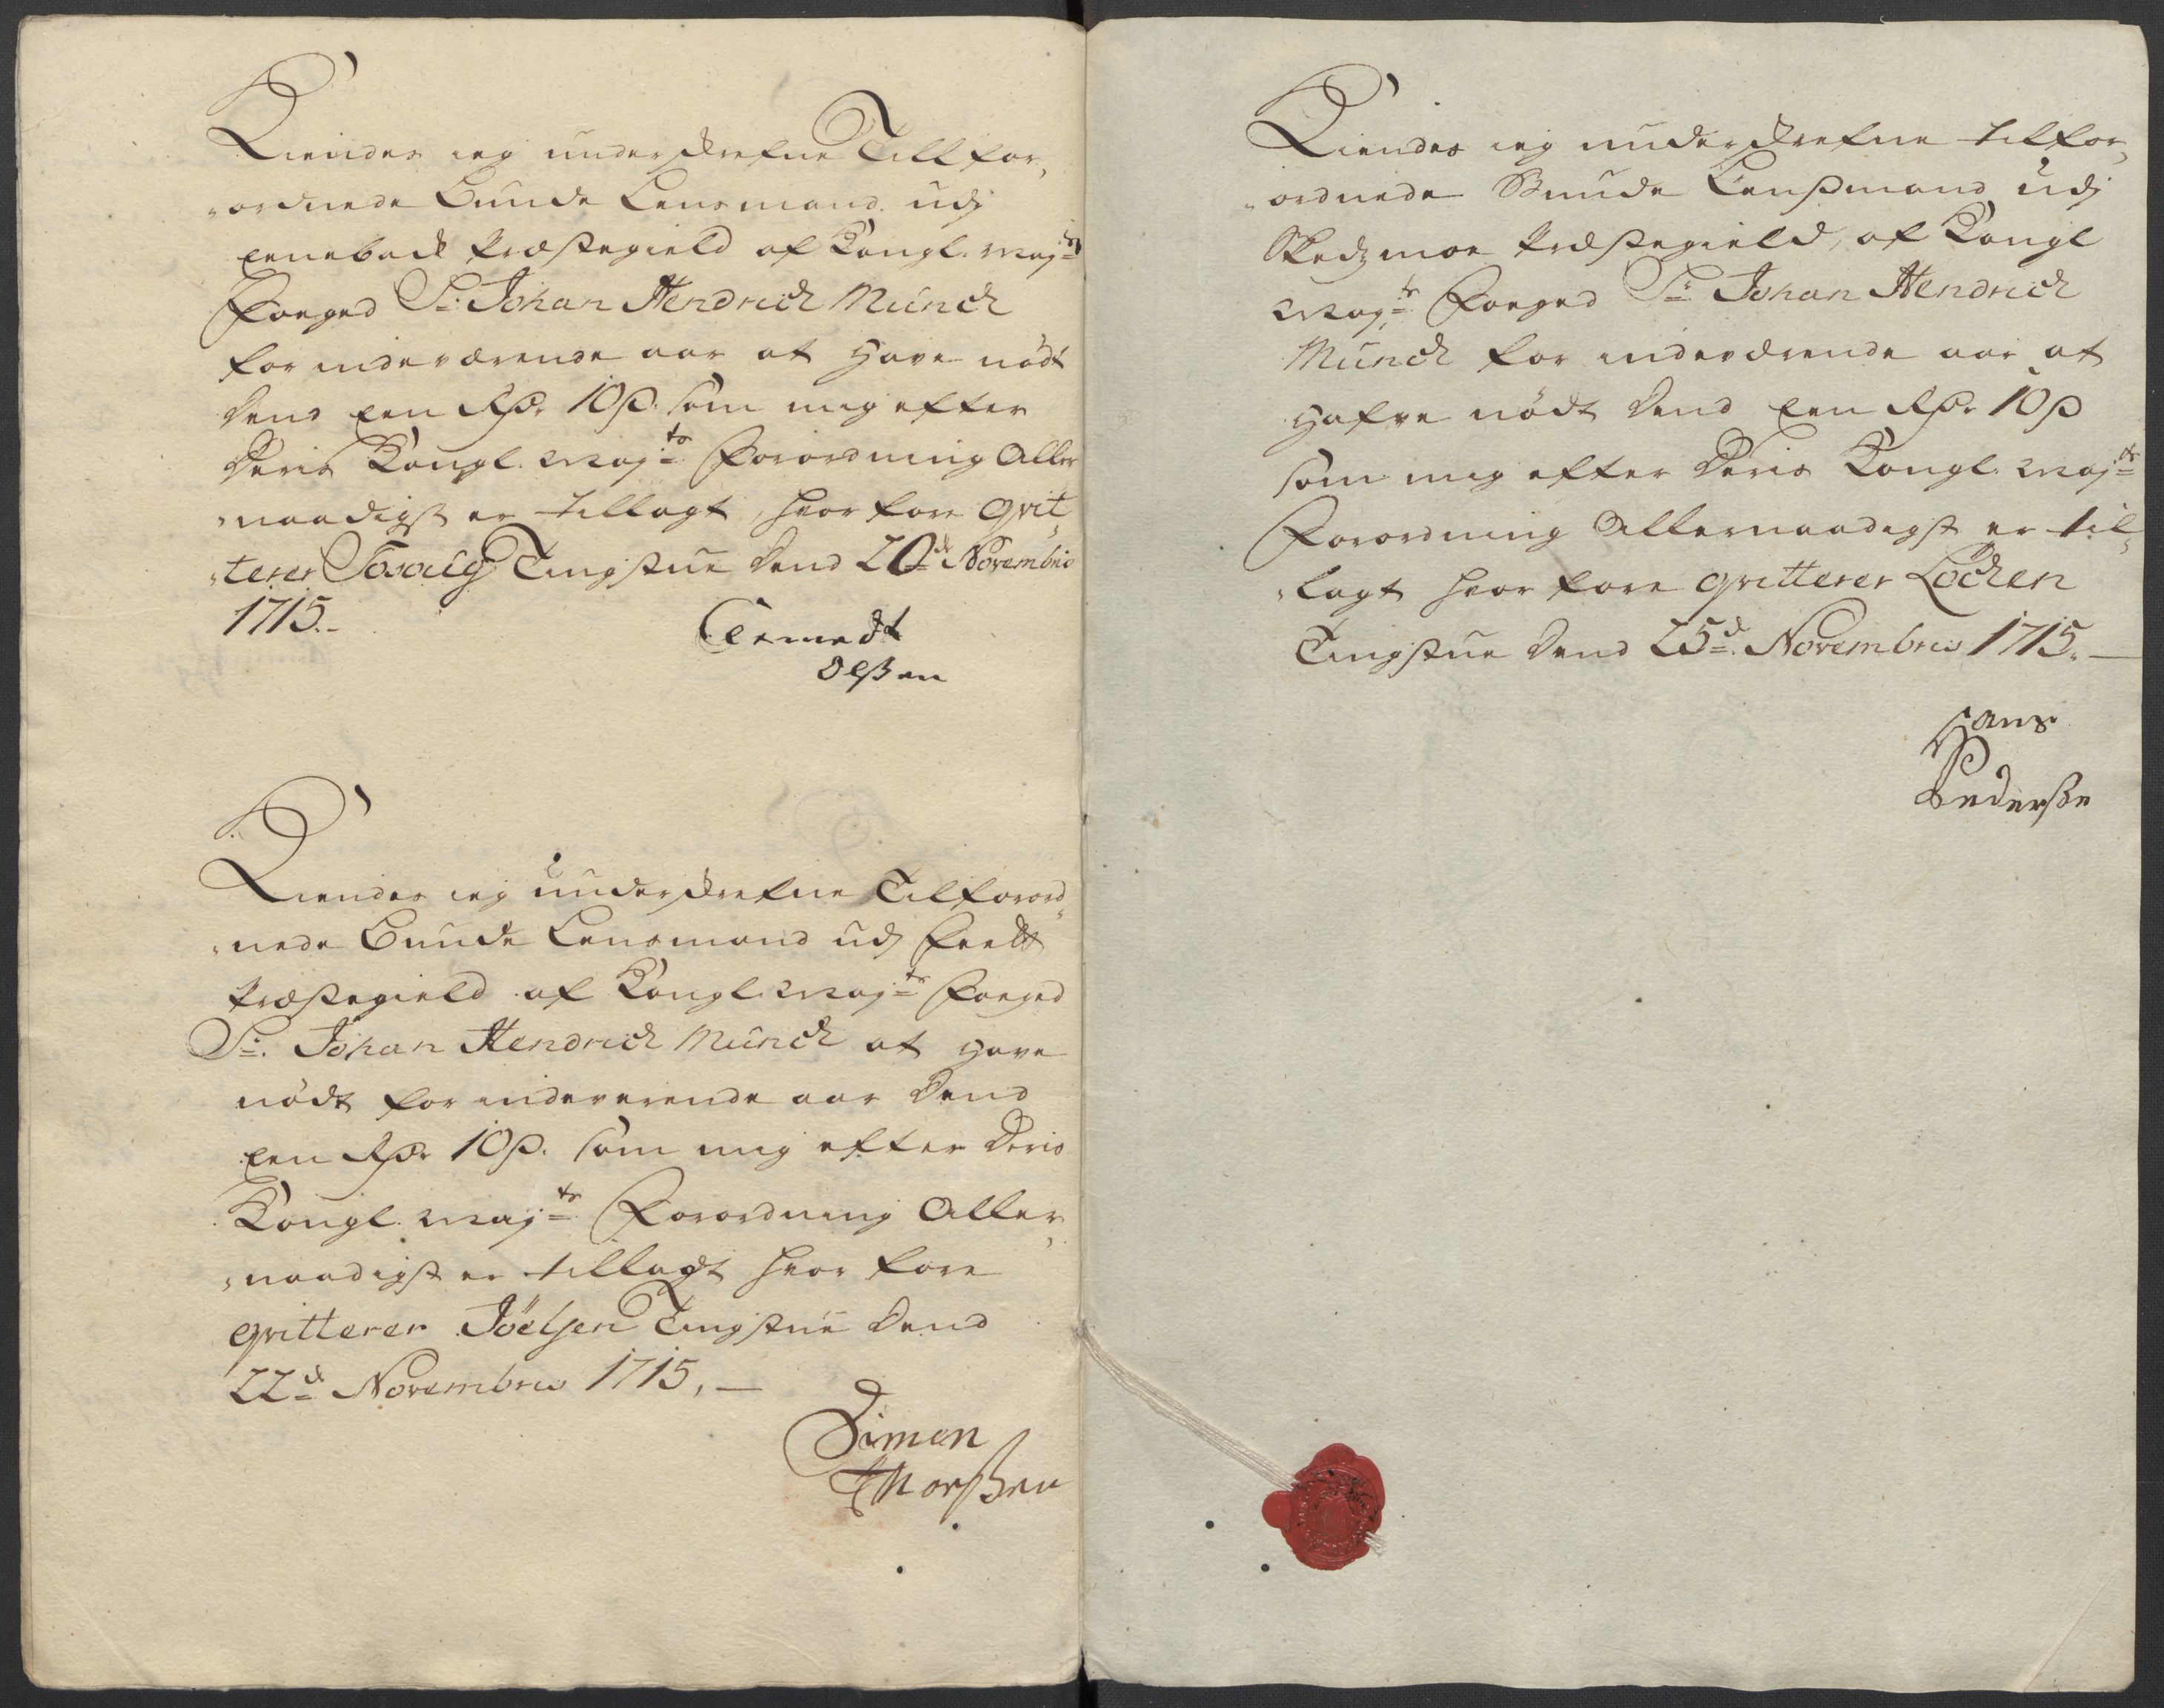 Kiendes ieg underskrefne Tillfor,
"ordnede Bunde Lensmand udj
Eeneback Præstegield af Kongl. May:ts
Foeged Sr: Johan Hendrich Münch
for indeværende aar at have nødt
dend Een Rdr 10ß. som mig efter
Deris Kongl. May:ts Forordning Aller
"naadigst er tillagt, hvor fore qvit,,
"terer Tingstue dend 20de Novembris
1715.-
Clemedt
Olßen
Kiendes ieg underskrefne Tilforord,,
"nede Bunde Lensmand udj Feedt
Præstegield af Kongl. May:ts Foeged
Sr:. Johan Hendrich Münch at have
nødt for indeverende aar dend
Een Rdr 10ß. som mig efter Deris
Kongl. May:ts Forordning Aller,,
"naadigst er tillagdt hvor fore
qvitterer Jöelsen Tingstue dend
22de Novembris 1715, —
Simen
Thorßen
Kiendes ieg underskrefne tilfor,,
"ordnede Bunde Lenßmand udj
Skedzmoe Præstegield, af Kongl
May:ts Foeged Sr: Johan Hendrich
Münch for indeværende aar at
hafve nødt dend Een Rdr 10ß
som mig efter Deris Kongl. May:ts
Forordning Allernaadigst er til,,
"lagt hvor fore qvitterer Lochen
Tingstue dend 25de. Novembris 1715. —
Hans
Pederße